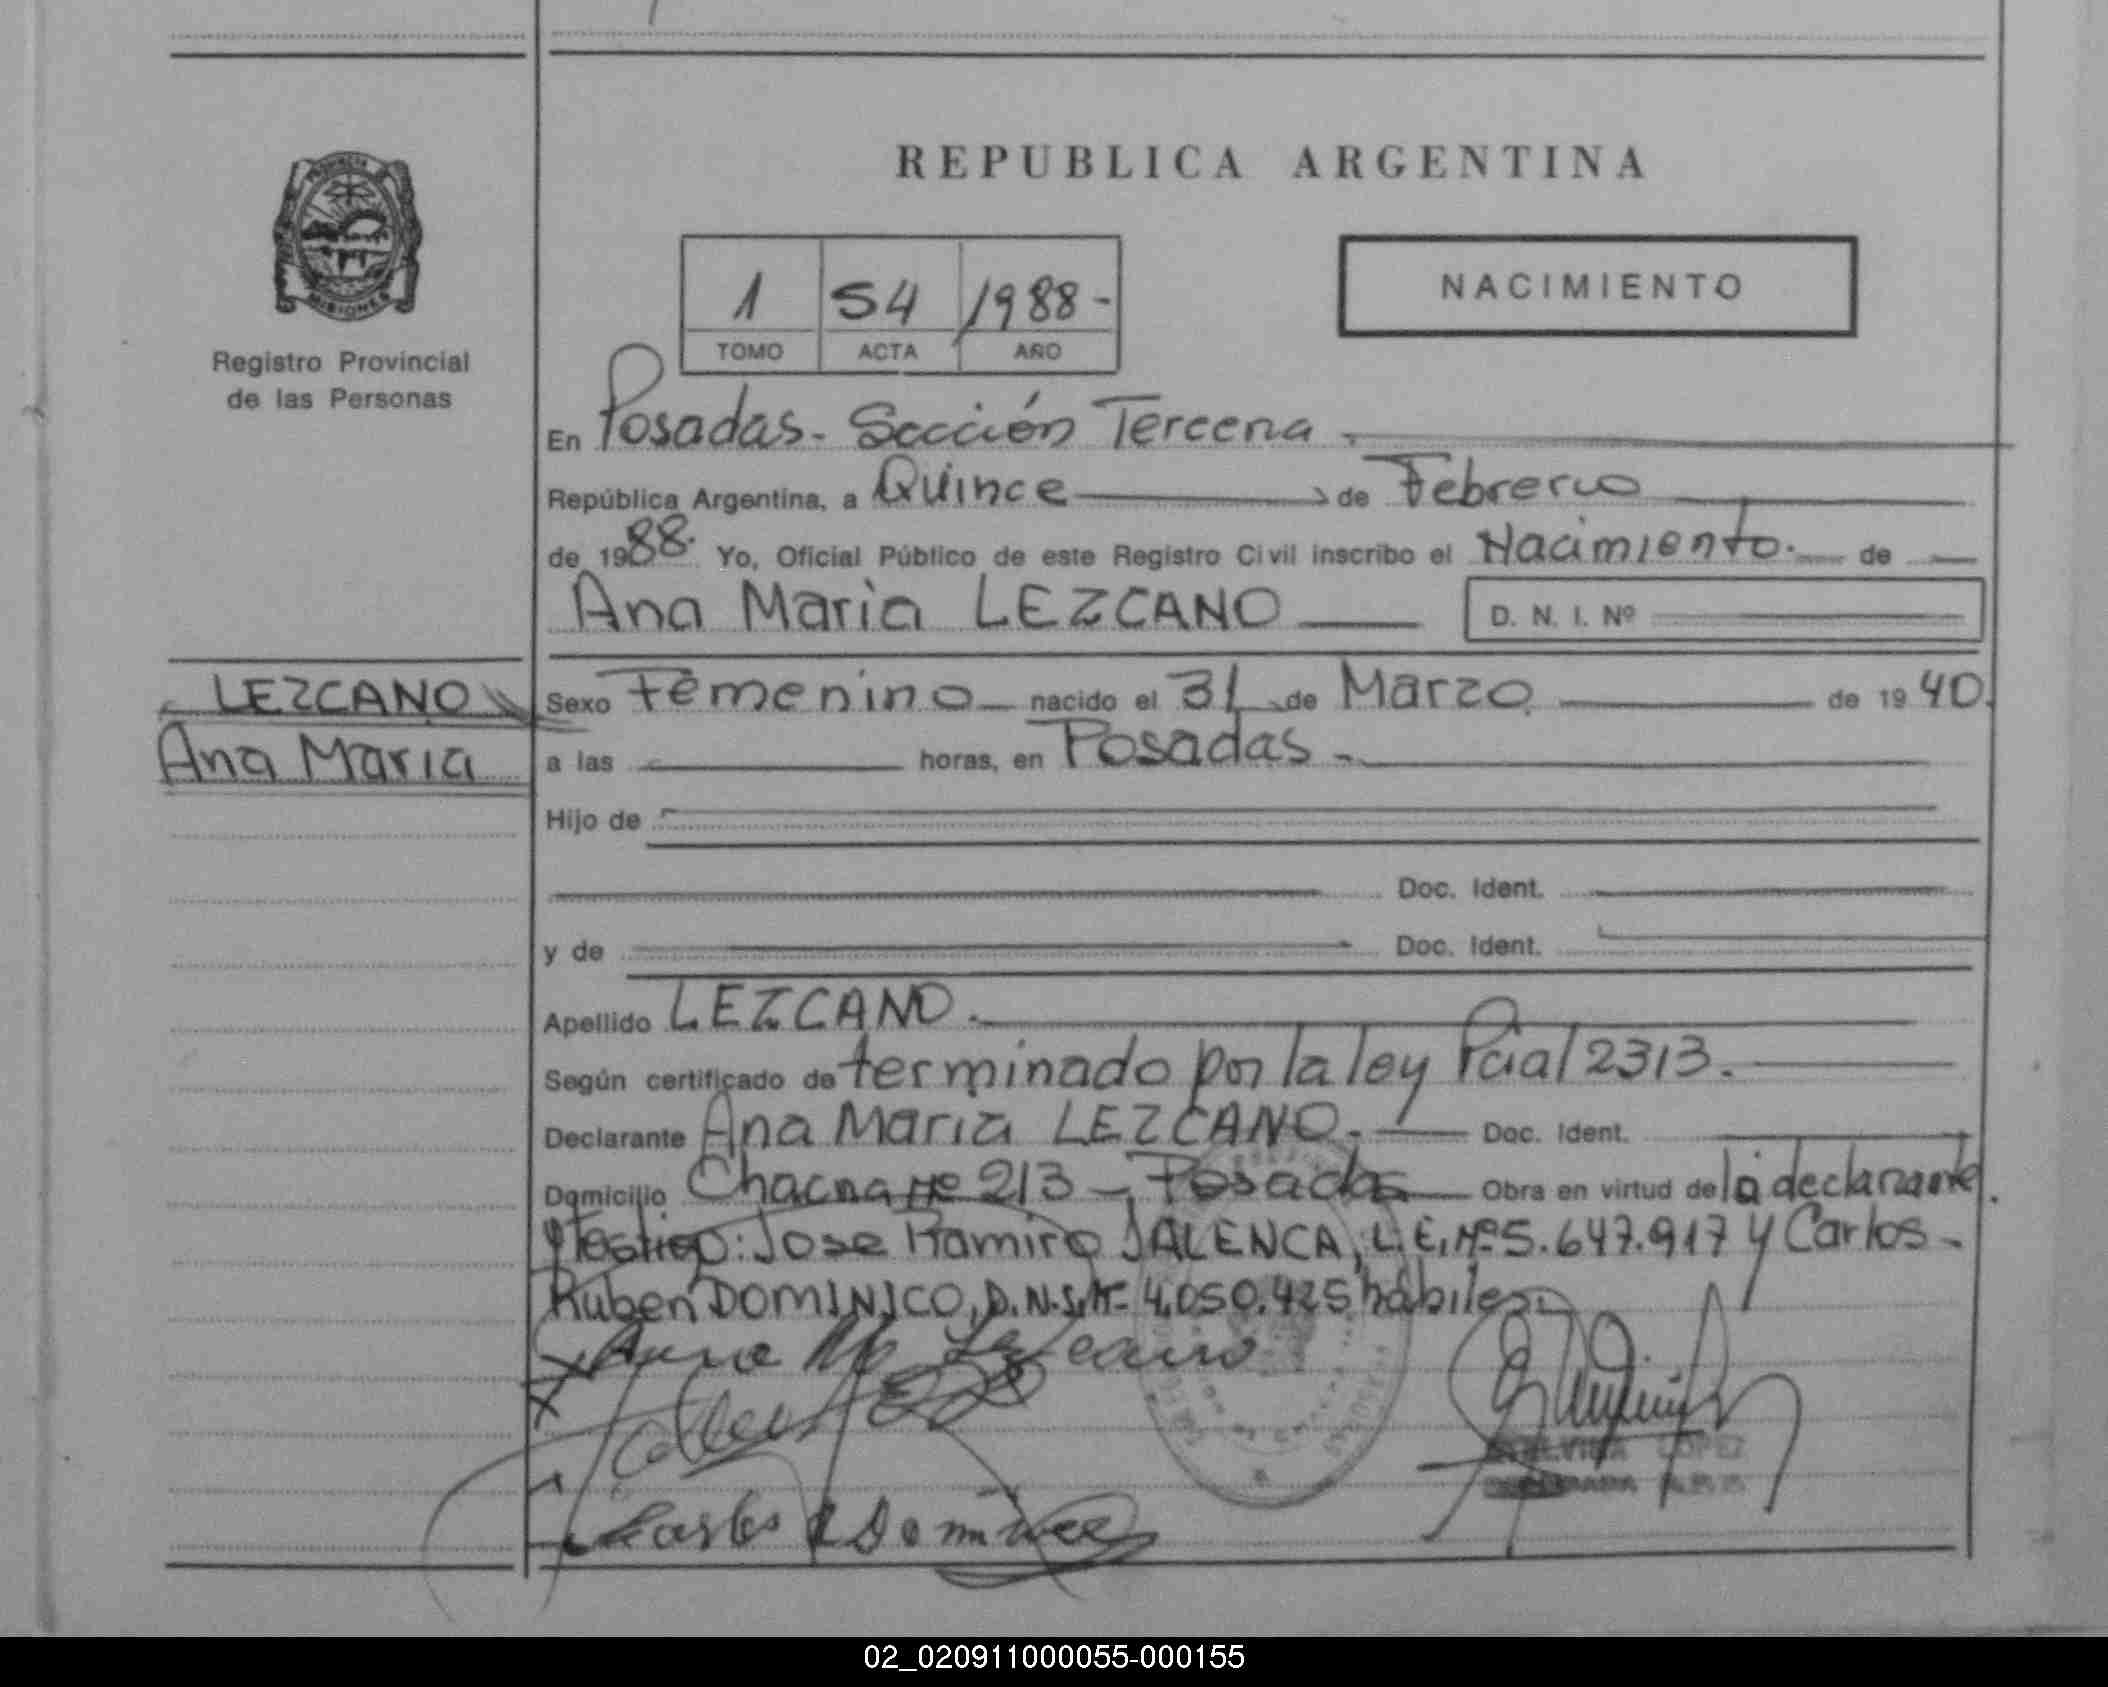 REPUBLICA ARGENTINA
PROVINCIA
MISIONES
Registro Provincial
de las Personas
1 54 1988-
TOMO ACTA AÑO
NACIMIENTO
En Posadas - Sección Tercera.
República Argentina, a Quince de Febrero
de 1988. Yo, Oficial Público de este Registro Civil inscribo el Nacimiento. de
Ana Maria LEZCANO D. N. I. Nº
LEZCANO
Ana Maria
Sexo Femenino nacido el 31 de Marzo de 1940.
a las horas, en Posadas -
Hijo de
Doc. Ident.
y de Doc. Ident.
Apellido LEZCANO.
Según certificado de terminado por la ley Pcial 2313.
Declarante Ana Maria LEZCANO. Doc. Ident.
Domicilio Chacra Nº 213 - Posadas Obra en virtud de la declarante.
y Testigo: Jose Ramiro JALENCA, L.E. Nº 5.647.917 y Carlos -
Ruben DOMINICO, D.N.I. Nº 4.050.425 hábiles.-
Ana Ma Lezcano
LOPEZ
Carlos R Dominico
02_020911000055-000155